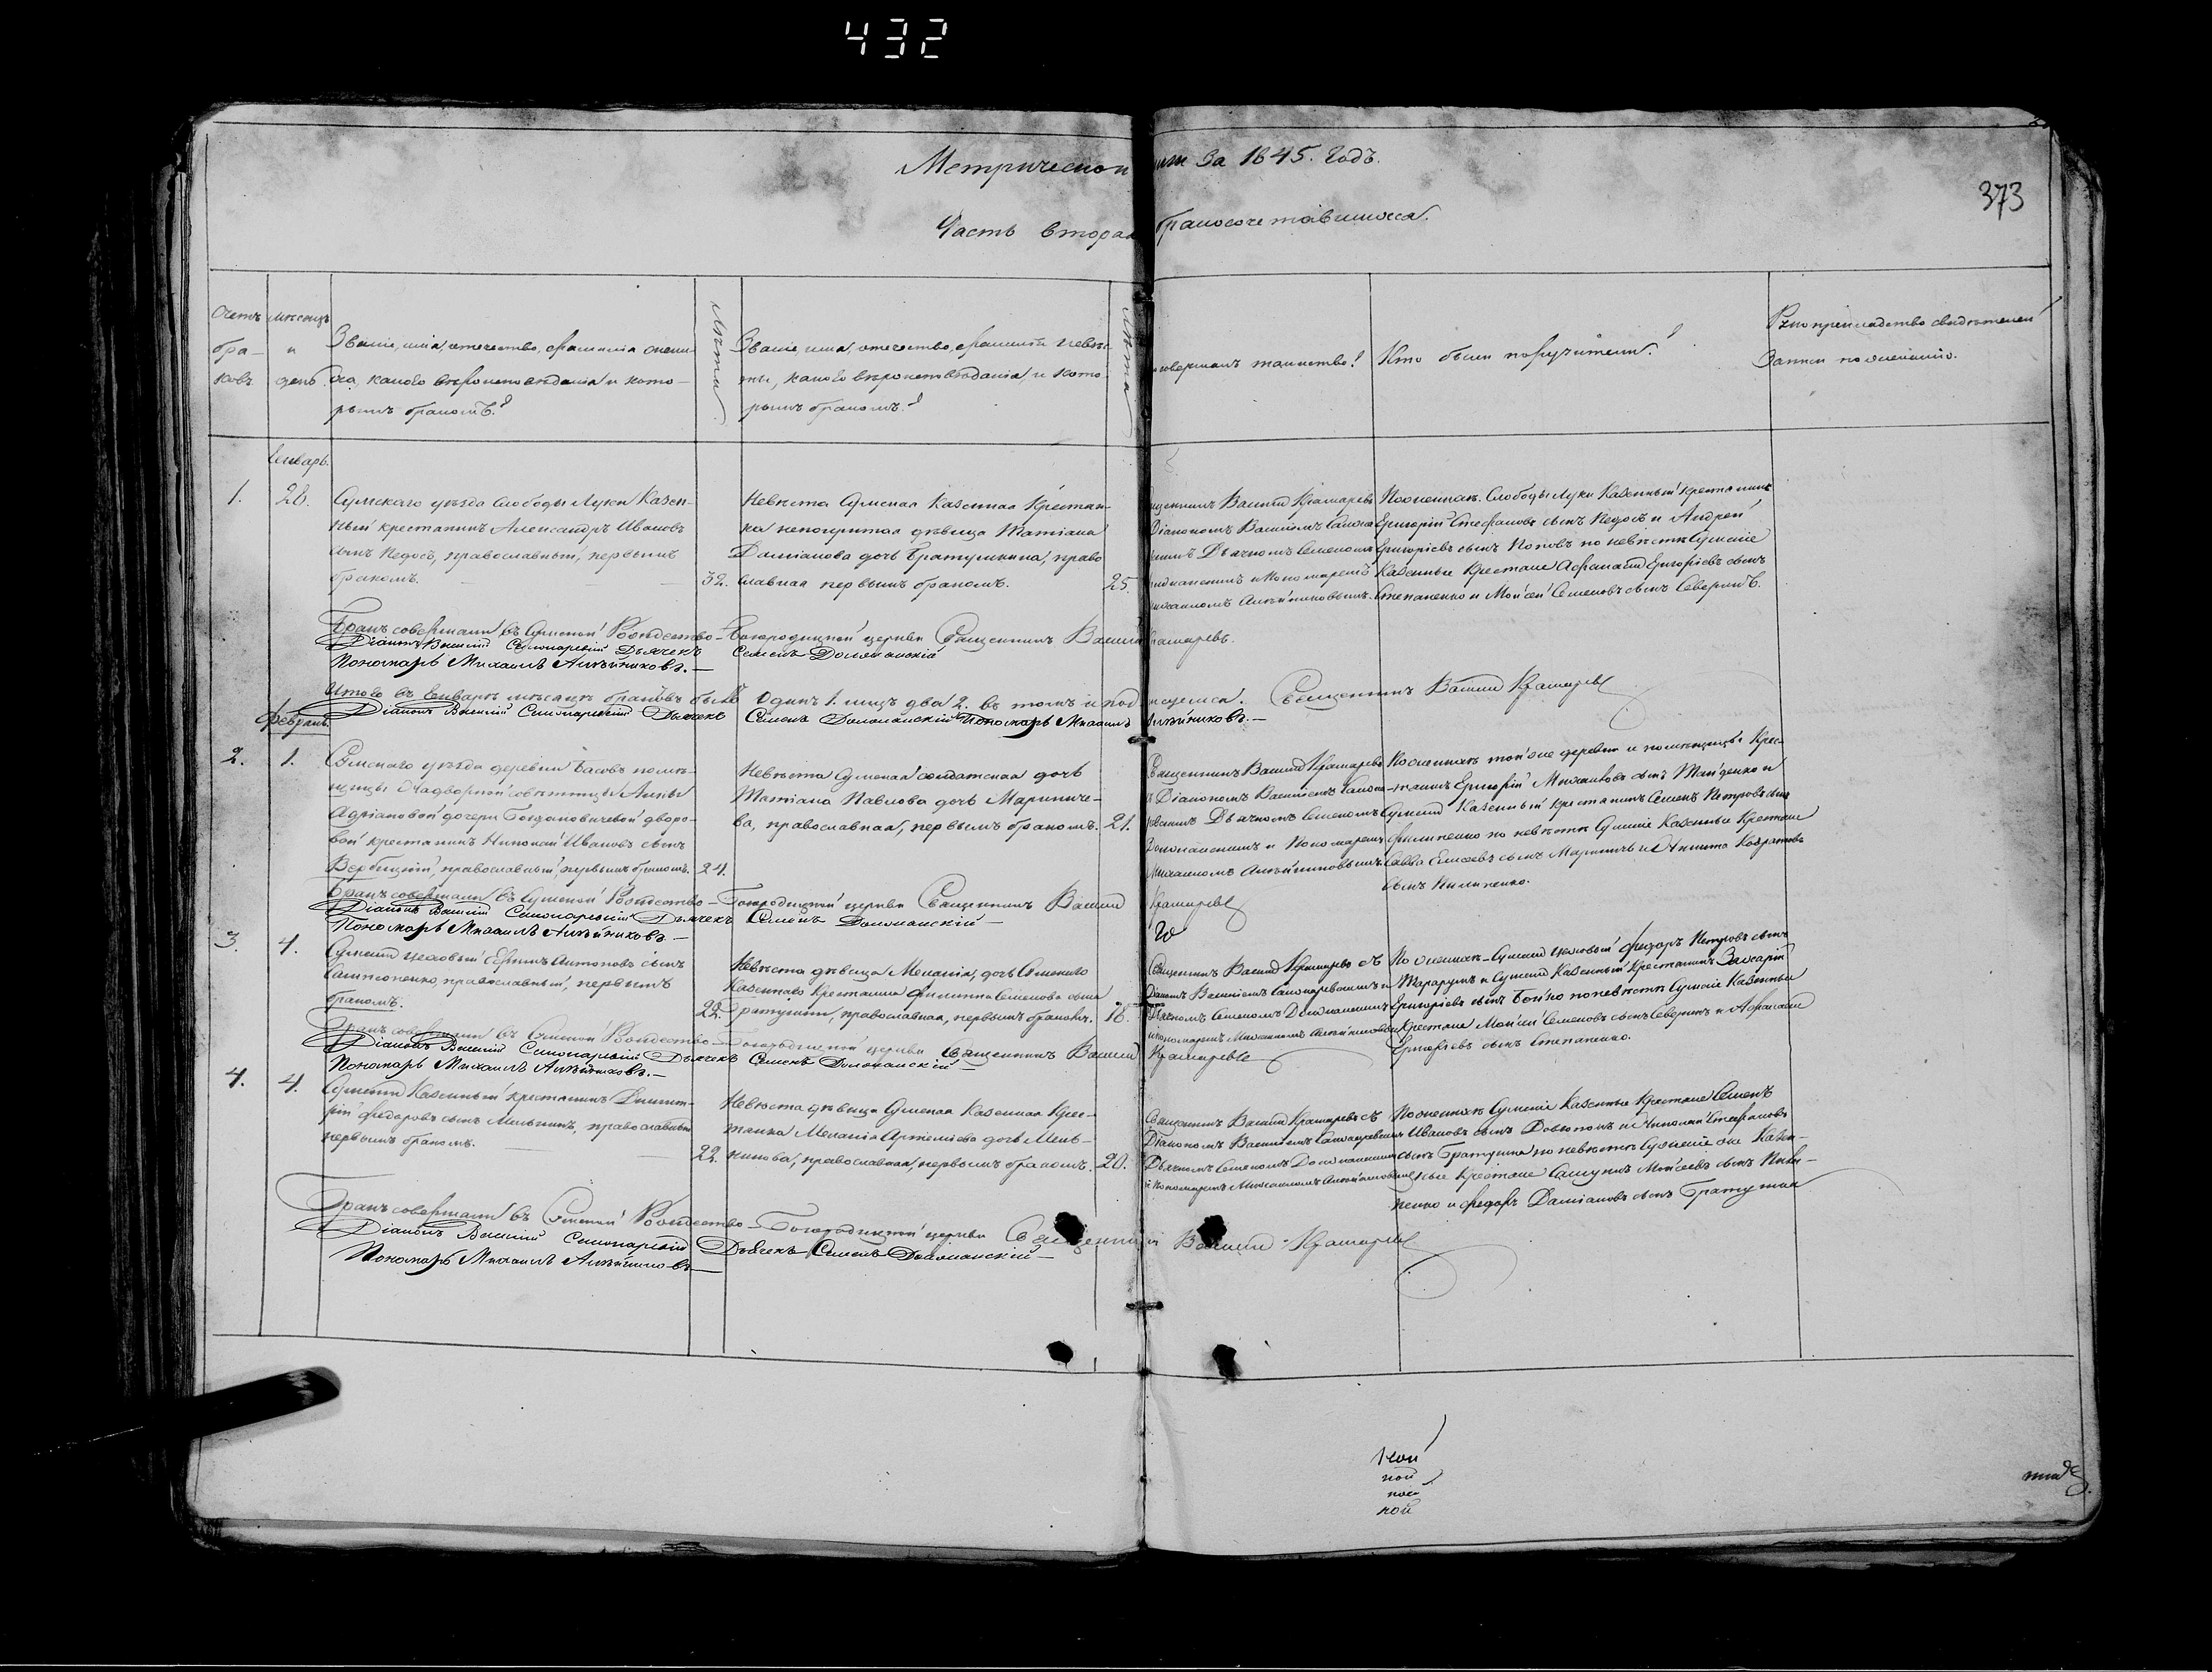 432
Метрической за 1845. Годъ.
373
Часть вторая бракосочетавшихся.
Счетъ бра- ковъ
Мѣсяцъ и день
Званіе, имя, отечество, фамилія жени-
ха, какого вѣроисповѣданія и кото-
рымъ бракомъ?
Лѣта
Званіе, имя, отечество, фамилія невѣс-
ты, какого вѣроисповѣданія и кото-
рымъ бракомъ?
Лѣта
совершалъ таинство?
Кто были поручители?
свидѣтелей
Записи по желанію.
Генварь.
1.
26.
Сумскаго уѣзда Слободы Луки Казен-
ный крестьянинъ Александръ Ивановъ
сынъ Недосѣ, православный, первымъ
бракомъ.
32.
Невѣста Сумская Казенная Крестьян-
ка дѣвица Матіана
Даміанова дочь Братушкина, право
славная первымъ бракомъ.
25.
Василій Крамаревъ
Діакономъ Василіемъ
Дьячкомъ Семеномъ
и Пономаремъ
По женихѣ. Слободы Луки Казенный крестьянинъ
Григорій Стефановъ сынъ Недосѣ и Андрей
Григоріевъ сынъ Поповъ по невѣстѣ Сумскіе
Казенные Крестьяне Афанасій Григоріевъ сынъ
Степаненко и Моѵсей Семеновъ сынъ Северинъ.
Бракъ совершали въ Сумской Рождество-Богородицкой церкви Священникъ Василій Крамаревъ.
Діаконъ Василій Дьячекъ Семенъ Доломанскій
Пономарь Михаилъ Алѣйниковъ.
Итого въ Генварѣ мѣсяцѣ браковъ было Одинъ 1. лицъ два 2. въ томъ и подписуемся. Священникъ Василій Крамаревъ
Діаконъ Василій Дьячекъ Семенъ Доломанскій Пономарь Михаилъ Алѣйниковъ.
Февраль.
2.
1.
Сумскаго уѣзда деревни Басовъ помѣ-
щицы Надворной совѣтницы Анны
Адріановой дочери Богдановичевой дворо-
вой крестьянинъ Николай Ивановъ сынъ
Вербицкій, православный, первымъ бракомъ.
24.
Невѣста Сумская солдатская дочь
Матіана Павлова дочь Мариниче-
ва, православная, первымъ бракомъ.
21.
Священникъ Василій Крамаревъ
Діакономъ Василіемъ
Дьячкомъ Семеномъ
Доломанскимъ и Пономаремъ
Михаиломъ Алѣйниковымъ
По женихѣ той же деревни и помѣщицы Крес-
тьянинъ Григорій Михайловъ сынъ и
Сумскій Казенный крестьянинъ Семенъ Петровъ сынъ
Филипенко по невѣстѣ Сумскіе Казенные Крестьяне
Савва Елисеевъ сынъ и Никита
сынъ Пилипенко.
Бракъ совершали въ Сумской Рождество-Богородицкой церкви Священникъ Василій Крамаревъ
Діаконъ Василій Дьячекъ Семенъ Доломанскій
Пономарь Михаилъ Алѣйниковъ.
3.
4.
Сумскій цеховый Ефимъ Антоновъ сынъ
православный, первымъ
бракомъ.
22.
Невѣста дѣвица Меланія, дочь Сумскаго
Казеннаго Крестьянина Филиппа Семенова сына
Братушки, православная, первымъ бракомъ.
18.
Священникъ Василій Крамаревъ съ
Діакономъ Василіемъ и
Дьячкомъ Семеномъ Доломанскимъ
и Пономаремъ Михаиломъ Алѣйниковымъ
По женихѣ-Сумскій цеховый Федоръ Петровъ сынъ
и Сумскій Казенный Крестьянинъ Захарій
Григоріевъ сынъ Бойко по невѣстѣ Сумскіе Казенные
Крестьяне Моѵсей Семеновъ сынъ Северинъ и Афанасій
Григоріевъ сынъ Степаненко.
Бракъ совершали въ Сумской Рождество-Богородицкой церкви Священникъ Василій Крамаревъ
Діаконъ Василій Дьячекъ Семенъ Доломанскій
Пономарь Михаилъ Алѣйниковъ.
4.
4.
Сумскій Казенный крестьянинъ Димит-
рій Федоровъ сынъ Мельникъ, православный
первымъ бракомъ.
22.
Невѣста дѣвица Сумская Казенная Крес-
тьянка Меланія Артеміева дочь Мель-
никова, православная, первымъ бракомъ.
20.
Священникъ Василій Крамаревъ съ
Діакономъ Василіемъ
Дьячкомъ Семеномъ Доломанскимъ
и Пономаремъ Михаиломъ Алѣйниковымъ
По женихѣ Сумскіе Казенные Крестьяне Семенъ
Ивановъ сынъ и Николай Стефановъ
сынъ Братушка по невѣстѣ Сумскіе же Казен-
ные Крестьяне Самуилъ Моѵсеевъ сынъ
и Федоръ Даміановъ сынъ Братушка
Бракъ совершали въ Сумской Рождество-Богородицкой церкви Священникъ Василій Крамаревъ
Діаконъ Василій Дьячекъ Семенъ Доломанскій
Пономарь Михаилъ Алѣйниковъ
ной
ной
ной